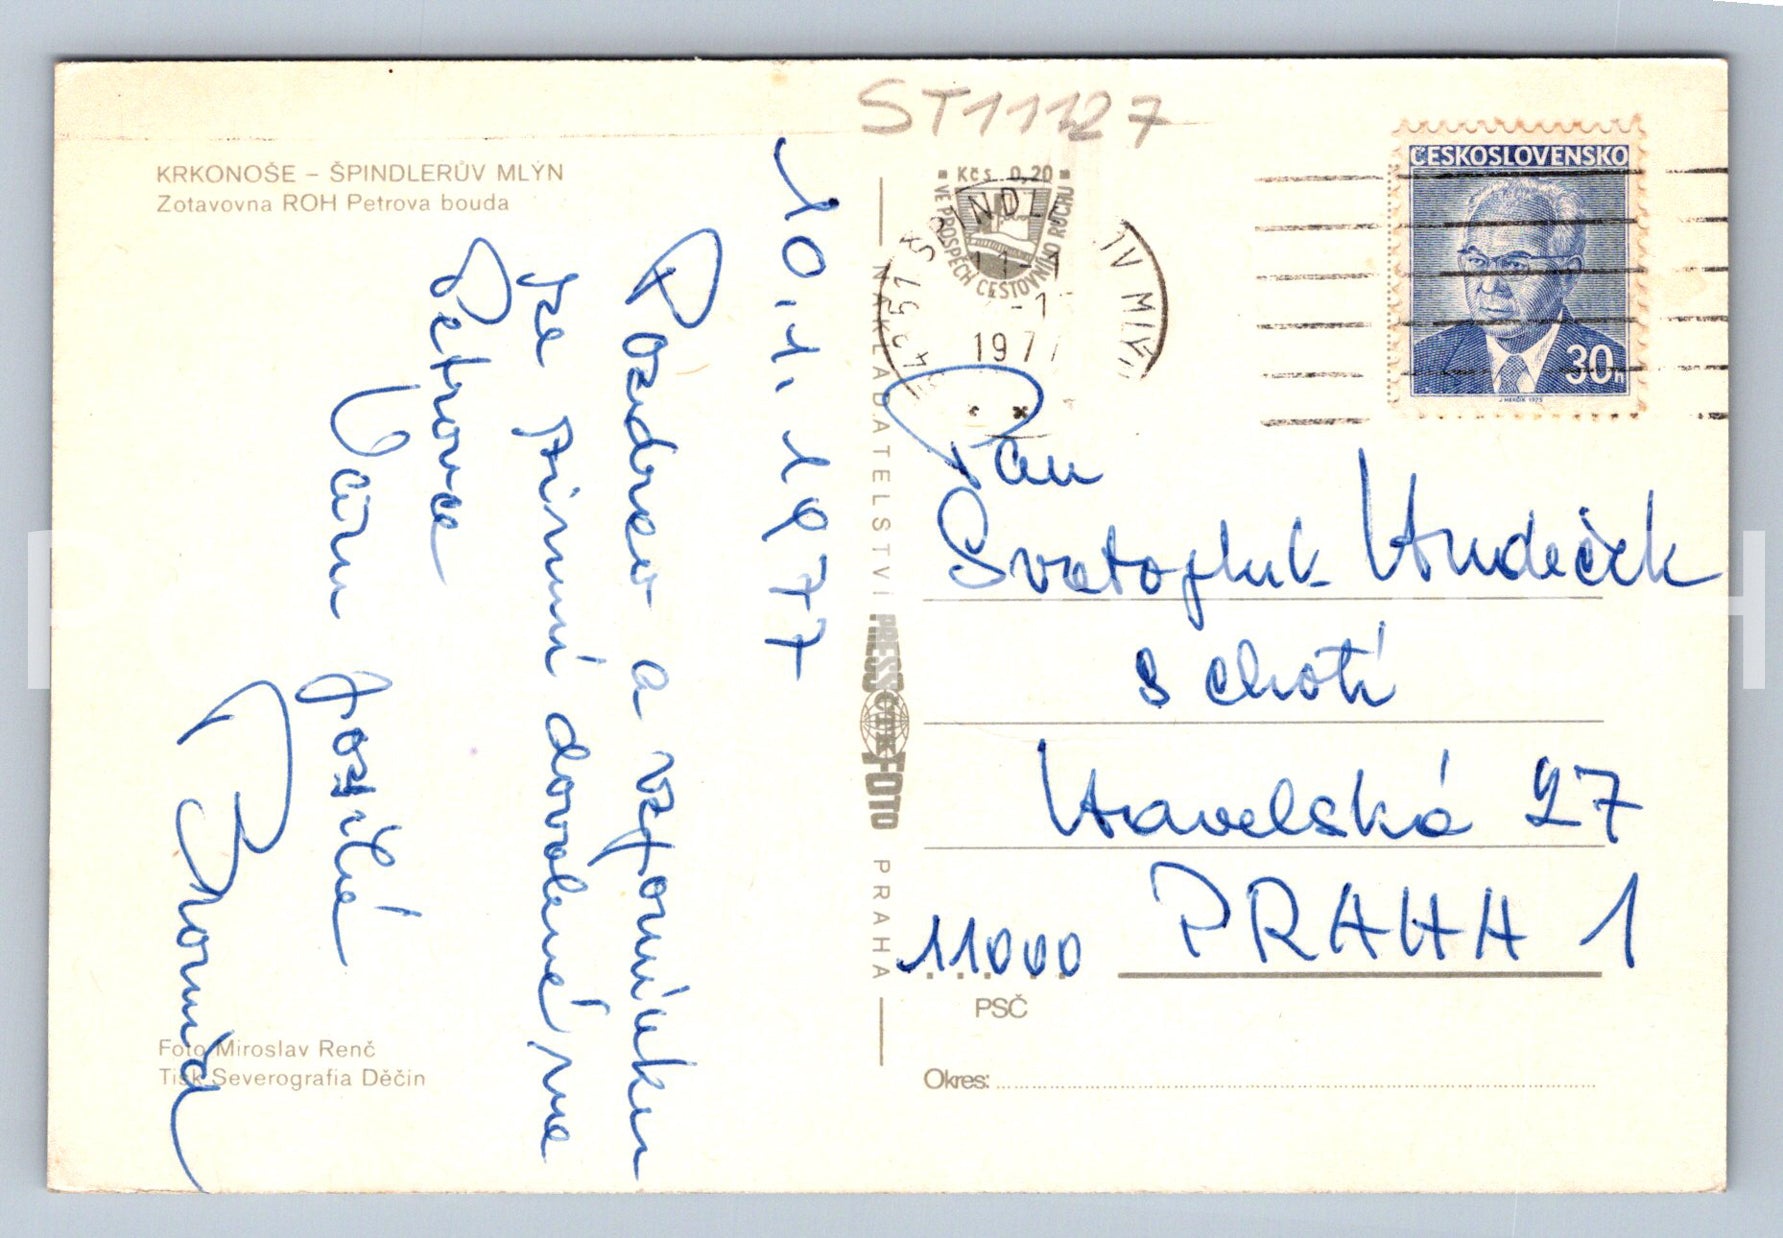 ST11127
KRKONOŠE – ŠPINDLERŮV MLÝN
Zotavovna ROH Petrova bouda
10.1.1977
Pozdrav a vzpomínku
ze zimní dovolené na
Petrovce
Vám posílá
Kčs 0,20
VE PROSPĚCH CESTOVNÍHO RUCHU
1977
ČESKOSLOVENSKO
30h
J. HERČÍK 1975
NAKLADATELSTVÍ PRESSFOTO PRAHA
ČTK
Pan
Svatopluk Hudeček
s chotí
Havelská 27
11000 PRAHA 1
PSČ
Okres:
Foto Miroslav Renč
Tisk Severografia Děčín